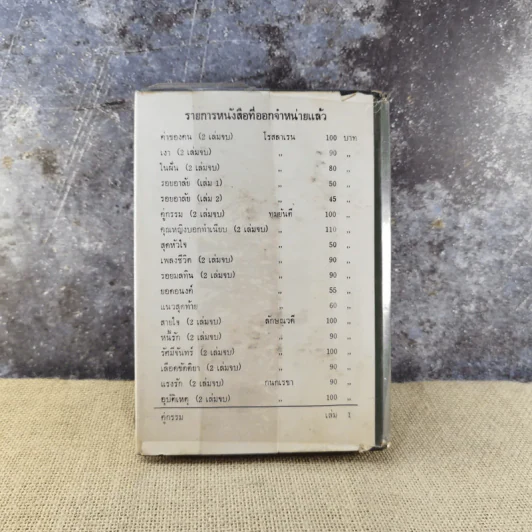 รายการหนังสือที่ออกจำหน่ายแล้ว
ค่าของคน (2 เล่มจบ) โรสลาเรน 100 บาท
เงา (2 เล่มจบ) „ 90 „
ในฝัน (2 เล่มจบ) „ 80 „
รอยอาลัย (เล่ม 1) „ 50 „
รอยอาลัย (เล่ม 2) „ 45 „
คู่กรรม (2 เล่มจบ) ทมยันตี 100 „
คุณหญิงนอกทำเนียบ (2 เล่มจบ) „ 110 „
สุดหัวใจ „ 50 „
เพลงชีวิต (2 เล่มจบ) „ 90 „
รอยมลทิน (2 เล่มจบ) „ 90 „
ยอดอนงค์ „ 55 „
แนวสุดท้าย „ 60 „
สายใจ (2 เล่มจบ) ลักษณวดี 100 „
หนี้รัก (2 เล่มจบ) „ 90 „
รัศมีจันทร์ (2 เล่มจบ) „ 100 „
เลือดขัตติยา (2 เล่มจบ) „ 90 „
แรงรัก (2 เล่มจบ) กนกเรขา 90 „
อุบัติเหตุ (2 เล่มจบ) „ 100 „
คู่กรรม เล่ม 1